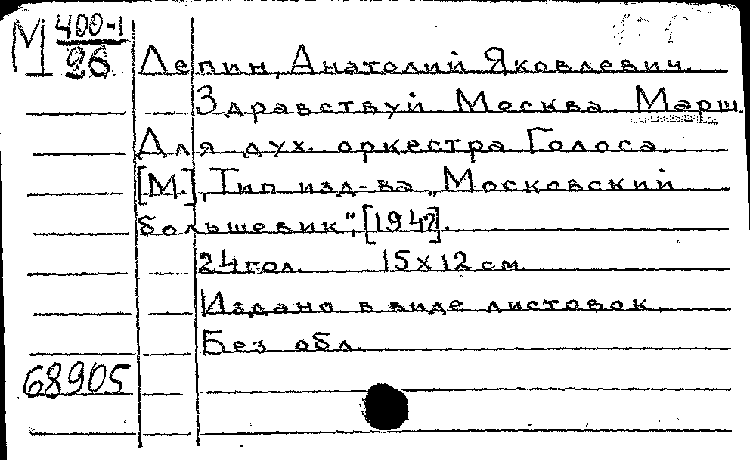 М 400-1
96
Лепин, Анатолий Яковлевич.
Здравствуй Москва. Марш.
Для дух. оркестра Голоса.
[М.], Тип изд-ва „Московский
большевик“, [1947].
24 гол. 15x12 см.
Издано в виде листовок.
Без обл.
68905